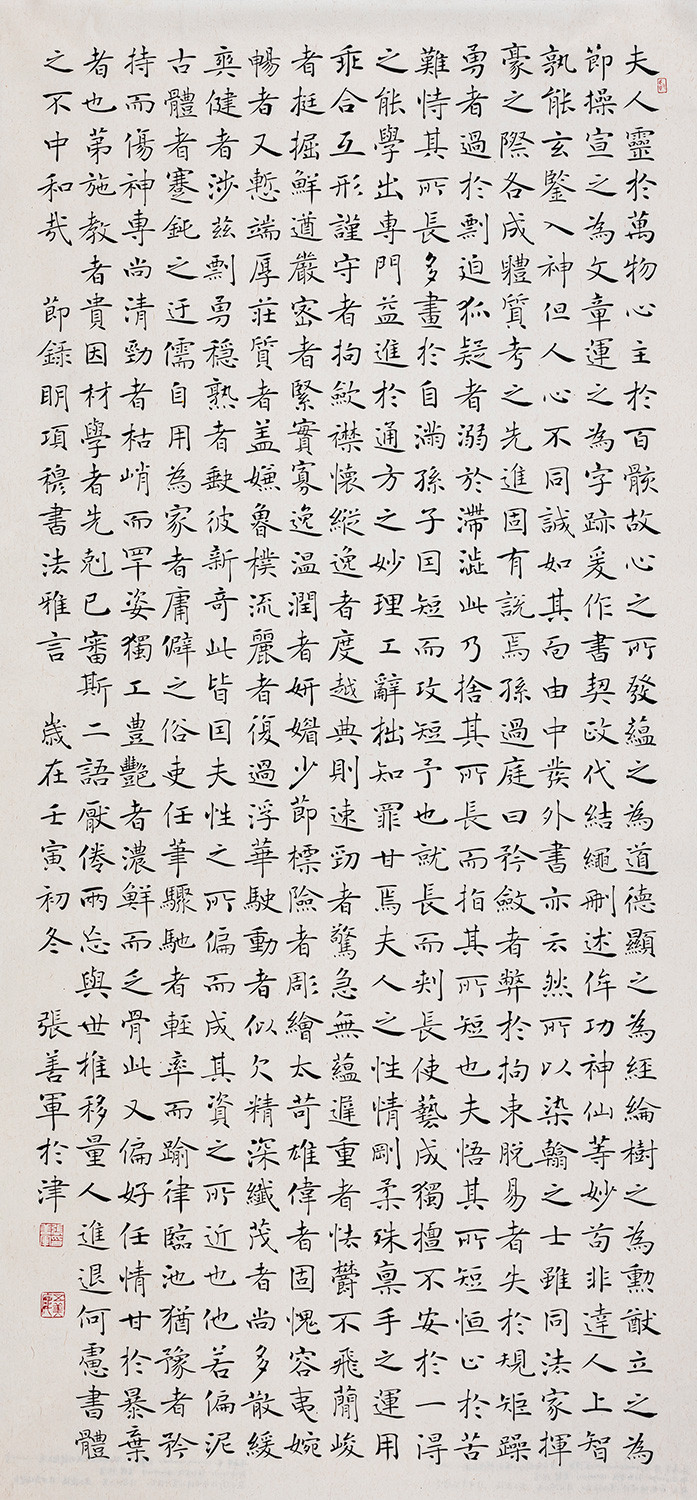 夫人靈於萬物心主於百骸故心之所發蘊之為道德顯之為經綸樹之為勳猷立之為
節操宣之為文章運之為字跡爰作書契政代結繩刪述侔功神仙等妙苟非達人上智
孰能玄鑒入神但人心不同誠如其面由中發外書亦云然所以染翰之士雖同法家揮
豪之際各成體質考之先進固有說焉孫過庭曰矜斂者弊於拘束脫易者失於規矩躁
勇者過於剽迫狐疑者溺於滯澁此乃捨其所長而指其所短也夫悟其所短恒止於苦
難恃其所長多畫於自滿孫子因短而攻短予也就長而刺長使藝成獨擅不安於一得
之能學出專門益進於通方之妙理工辭拙知罪甘焉夫人之性情剛柔殊稟手之運用
乖合互形謹守者拘斂襟懷縱逸者度越典則速勁者驚急無蘊遲重者怯鬱不飛簡峻
者挺掘鮮遒嚴密者緊實寡逸溫潤者妍媚少節標險者彫繪太苛雄偉者固愧容夷婉
暢者又慙端厚莊質者蓋嫌魯樸流麗者復過浮華駛動者似欠精深纖茂者尚多散緩
爽健者涉茲剽勇穩熟者缺彼新奇此皆因夫性之所偏而成其資之所近也他若偏泥
古體者蹇鈍之迂儒自用為家者庸僻之俗吏任筆驟馳者輕率而踰律臨池猶豫者矜
持而傷神專尚清勁者枯峭而罕姿獨工豊艷者濃鮮而乏骨此又偏好任情甘於暴棄
者也第施教者貴因材學者先剋己審斯二語厭倦兩忘與世推移量人進退何慮書體
之不中和哉 節錄明項穆書法雅言 歲在壬寅初冬 張善軍於津